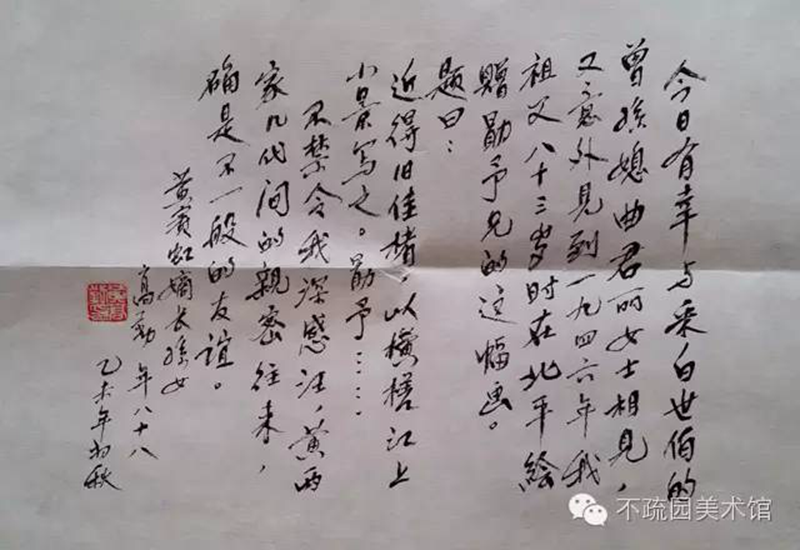 今日有幸与采白世伯的
曾孙媳曲君丽女士相见，
又意外见到一九四六年我
祖父八十三岁时在北平绘
赠勖予兄的这幅画。
题曰：
近得旧佳楮，以横槎江上
小景写之。勖予……，
不禁令我深感汪，黄两
家几代间的亲密往来，
确是不一般的友谊。
黄宾虹嫡长孙女
高勤 年八十八
乙未年初秋
不疏园美术馆